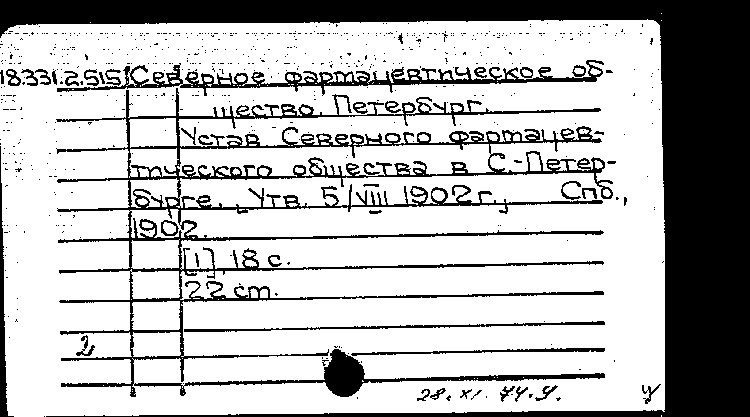 18.331.2.515 Северное фармацевтическое об-
щество. Петербург.
Устав Северного фармацев-
тического общества в С.-Петер-
бурге. „Утв. 5/VIII 1902 г.„ Спб.,
1902.
[1], 18 с.
22 cm.
2
28.XI.